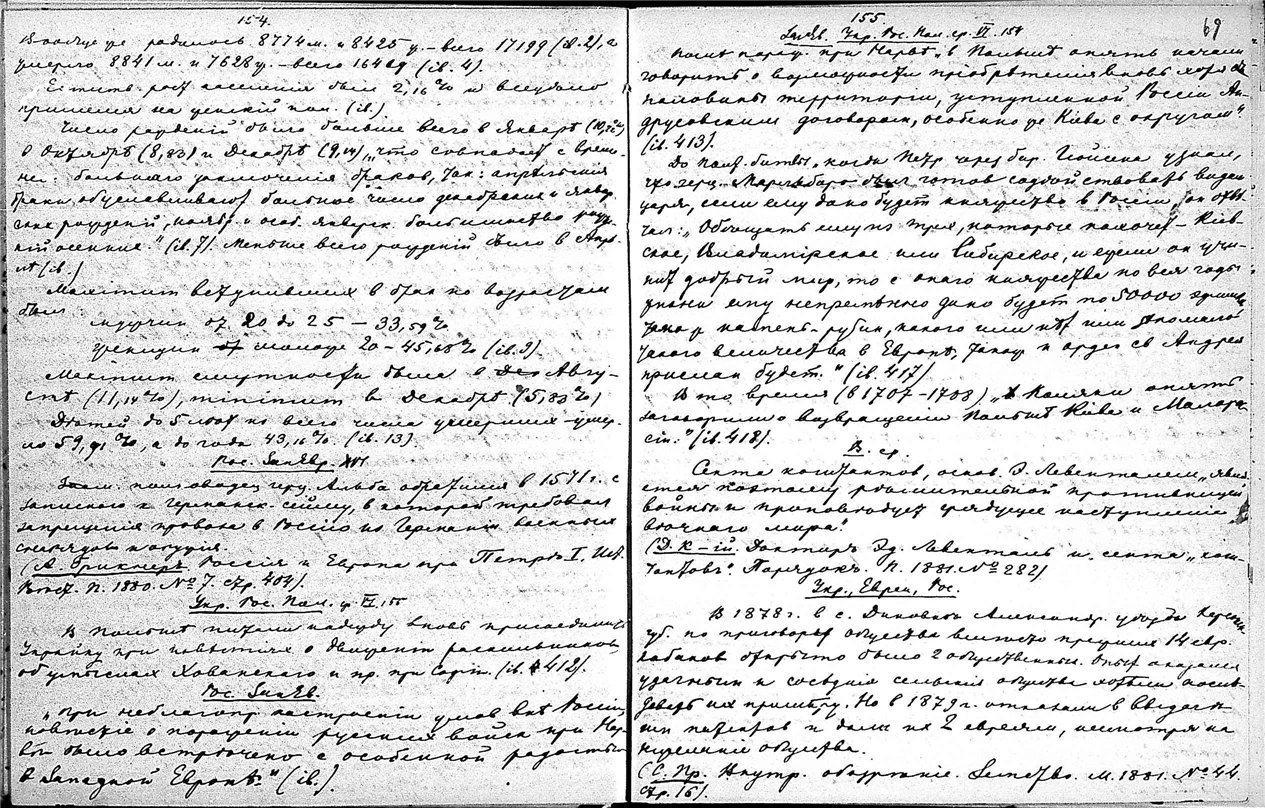 154.
Вообще же родилось 8774 м. и 8425 ж. – всего 17199 (ib. 2), а
умерло 8841 м. и 7628 ж. – всего 16469 (ib. 4).
Естеств. рост населения был 2,16% и всецело
пришелся на женскій пол. (ib.)
Число рождений было больше всего в Январѣ
в Октябрѣ (8,83) и Декабрѣ (9,14) „что совпадает с врем-
нем большаго заключения браков, так: апрѣльския
браки обусловливают большое число декабрских и янв
рождений, нояб. и особ. январск. большинство рожде-
ний осенния." (ib. 7). Меньше всего рождений было в Апр.
(ib.)
Махітит вступивших в брак по возрастам
был:
мужчин от 20 до 25 – 33,59%
женщин моложе 20 – 45,68% (ib. 9).
Махітит смертности был в Авгу-
стѣ (11,14%), тіпітит в Декабрѣ (5,83%)
Дѣтей до 5 лѣт из всего числа умерших умер-
ло 59,91%, а до года 43,16%. (ib. 13)
Рос. ЗапЕвр. XVI
полководец герц. Альба обратился в 1571 г. с
запиской к Германск. сейму, в которой требовал
запрещения провоза в Россію из Германии военных
снарядов и оружія.
(А. Брикнер. Россія и Европа при Петрѣ I. Ист.
Вѣст. П. 1880. № 7. стр. 404).
Укр. Рос. Пол. ср. VI 155
В Польшѣ питали надежду вновь присоединить
Украйну при извѣстіях о движении раскольников,
об умыслах Хованскаго и пр. при Софіи. (ib. 412).
Рос. ЗапЕв.
„При неблагопр. настроении умов внѣ Россіи,
извѣстие о поражении русских войск при Нар-
вѣ было встрѣчено с особенной радостью
в Западной Европѣ." (ib.).
155. 69
ЗапЕв. Укр. Рос. Пол. ср. VI 154
Послѣ пораж. при Нарвѣ „в Польшѣ опять начали
говорить о возможности пріобрѣтения вновь хоря
половины территоріи, уступленной Россіи Ан-
друсовским договором, особенно же Кіева с округом"
(ib. 413).
До Полт. битвы, когда Петр через бар. Гюйсена узнал,
что герц. Марльборо был готов содѣйствовать видам
царя, если ему дано будет княжество в Россіи, он отвѣ
чал: „Обѣщать ему из трех, которые похочет – Кіев-
ское, Владимірское или Сибирское, и ежели он учи-
нит добрый мир, то с онаго княжества по вся годы
жизни ему непремѣнно дано будет по 50000
також камень-рубин, какого или нѣт или зѣло мало
такого величества в Европѣ, також и орден св. Андрея
прислан будет." (ib. 417)
В то время (в 1707–1708) „Поляки опять
заговорили о возвращении Польшѣ Кіева и Малорос-
сіи." (ib. 418).
В. ср.
Секта когитантов, основ. Э. Левенталем, „явля
ется поэтому рѣшительной противницей
войны и проповѣдует грядущее наступление
вѣчного мира."
(Э. К–ій. Доктор Эд. Левенталь и секта „коги-
тантов". Порядок. П. 1881. № 282)
Укр., Евреи, Рос.
В 1878 г. в с. Диковкѣ Александр. уѣзда Херсон.
губ. по приговору общества вмѣсто прежних 14 евр.
кабаков открыто было 2 общественных. Опыт оказался
удачным и сосѣдния сельския общества хотѣли послѣ-
довать их примѣру. Но в 1879 г. отказали в выдачѣ
им патентов и дали их 2 евреям, несмотря на
нежелание общества.
(С. Пр. Внутр. обозрѣние. Земство. М. 1881. № 44.
стр. 16).